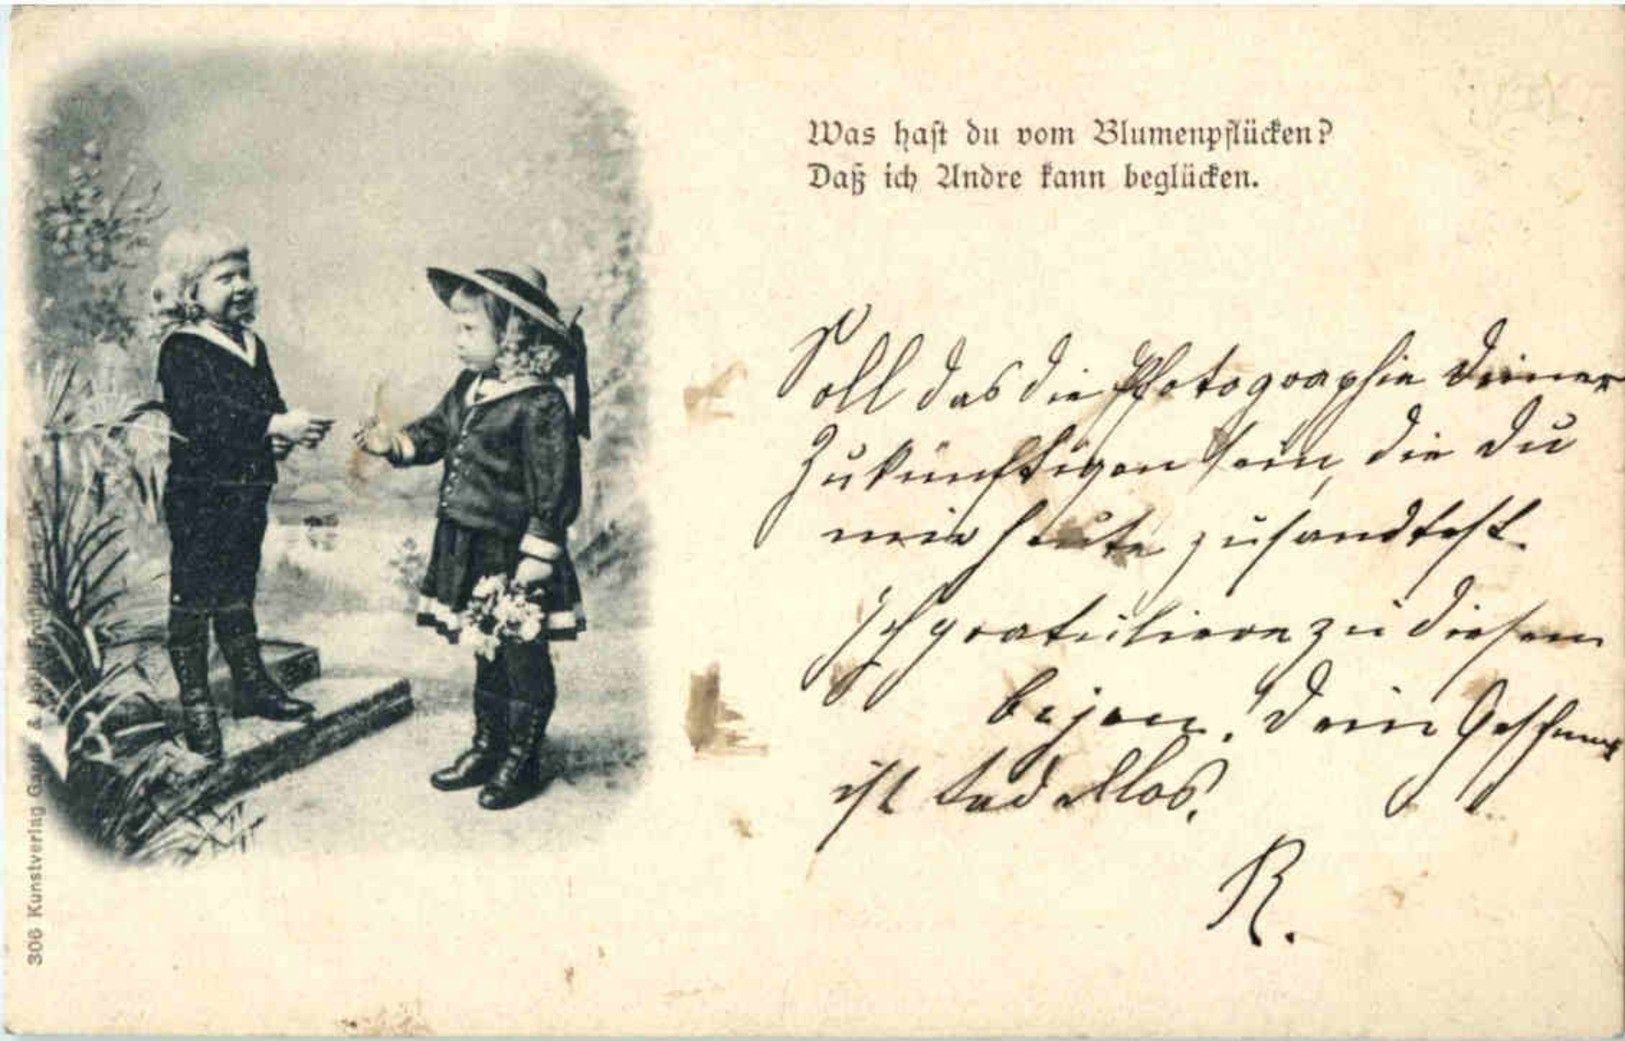 Was hast du vom Blumenpflücken?
Daß ich Andre kann beglücken.
Soll das die Photographie Deiner
Zukünftigen sein, die Du
mir heute zusandtest
Ich gratuliere zu diesem
bijou! Dein Geschmack
ist tadellos!
R.
306 Kunstverlag